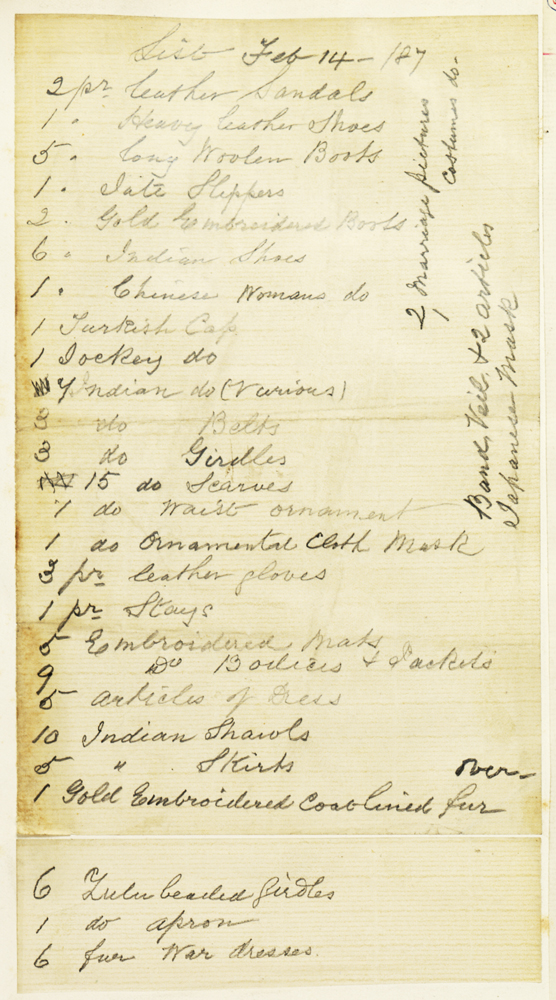 List Feb 14 - 187
2 pr leather Sandals
1 " Heavy leather Shoes
5 " long Woolen Boots
1 " Jute Slippers
2 " Gold Embroidered Boots
6 " Indian Shoes
1 " Chinese Womans do
1 Turkish Cap
1 Jockey do
7 Indian do (Various)
do Belts
do Girdles
15 do Scarves
1 do Waist ornament
1 do Ornamental Cloth Mask
3 pr leather gloves
1 pr Stays
5 Embroidered Mats
9 Do Bodices + Jackets
5 articles of Dress
10 Indian Shawls
5 " Skirts
over-
1 Gold Embroidered Coat lined fur
6 Zulu beaded Girdles
1 do apron
6 fur War dresses
2 Marriage pictures
1 Costumes do-
Band, Veil, + 2 articles
Japanese Mask